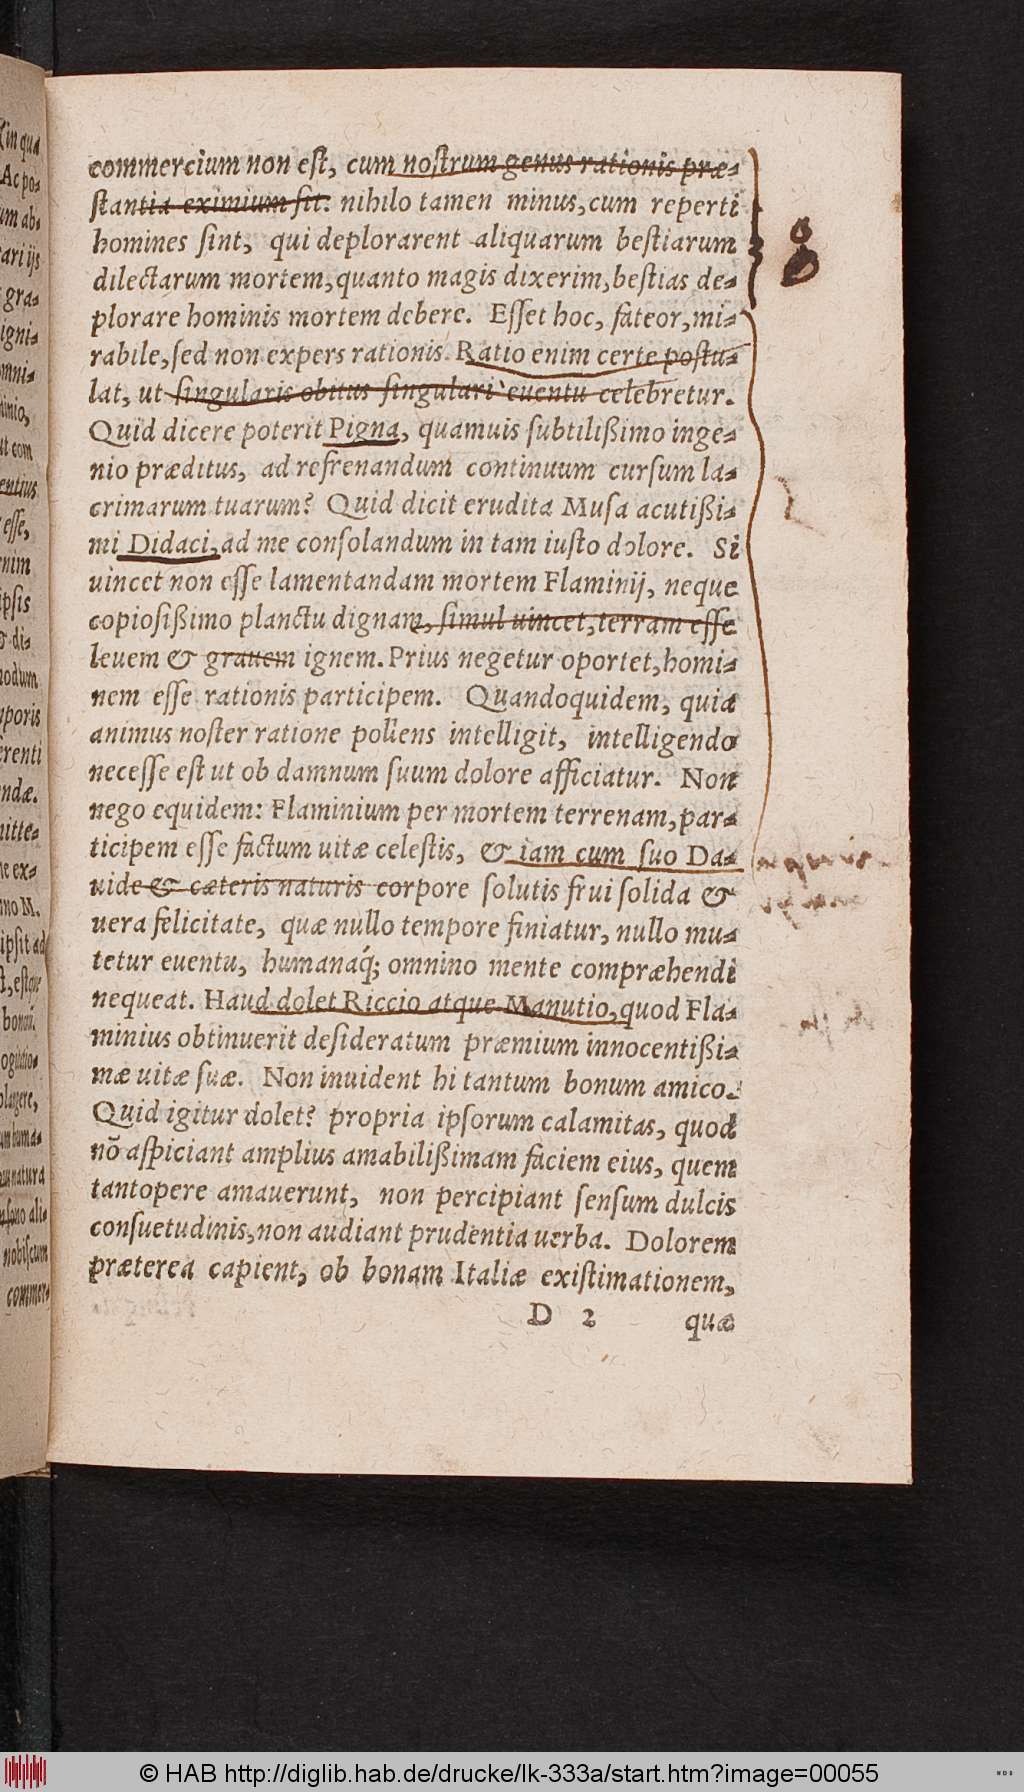 commercium non est, cum nostrum genus rationis præ-
stantia eximium sit: nihilo tamen minus, cum reperti
homines sint, qui deplorarent aliquarum bestiarum
dilectarum mortem, quanto magis dixerim, bestias de-
plorare hominis mortem debere. Esset hoc, fateor, mi-
rabile, sed non expers rationis. Ratio enim certe postu-
lat, ut singularis obitus singulari euentu celebretur.
Quid dicere poterit Pigna, quamuis subtilißimo inge-
nio præditus, ad refrenandum continuum cursum la-
crimarum tuarum? Quid dicit erudita Musa acutißi-
mi Didaci, ad me consolandum in tam iusto dolore. Si
uincet non esse lamentandam mortem Flaminij, neque
copiosißimo planctu dignam, simul uincet, terram esse
leuem & grauem ignem. Prius negetur oportet, homi-
nem esse rationis participem. Quandoquidem, quia
animus noster ratione pollens intelligit, intelligendo
necesse est ut ob damnum suum dolore afficiatur. Non
nego equidem: Flaminium per mortem terrenam, par-
ticipem esse factum uitæ celestis, & iam cum suo Da-
uide & cæteris naturis corpore solutis frui solida &
uera felicitate, quæ nullo tempore finiatur, nullo mu-
tetur euentu, humanaq́; omnino mente compræhendi
nequeat. Haud dolet Riccio atque Manutio, quod Fla-
minius obtinuerit desideratum præmium innocentißi-
mæ uitæ suæ. Non inuident hi tantum bonum amico.
Quid igitur dolet? propria ipsorum calamitas, quod
nõ aspiciant amplius amabilißimam faciem eius, quem
tantopere amauerunt, non percipiant sensum dulcis
consuetudinis, non audiant prudentia uerba. Dolorem
præterea capient, ob bonam Italiæ existimationem,
D 2 quæ
© HAB http://diglib.hab.de/drucke/lk-333a/start.htm?image=00055